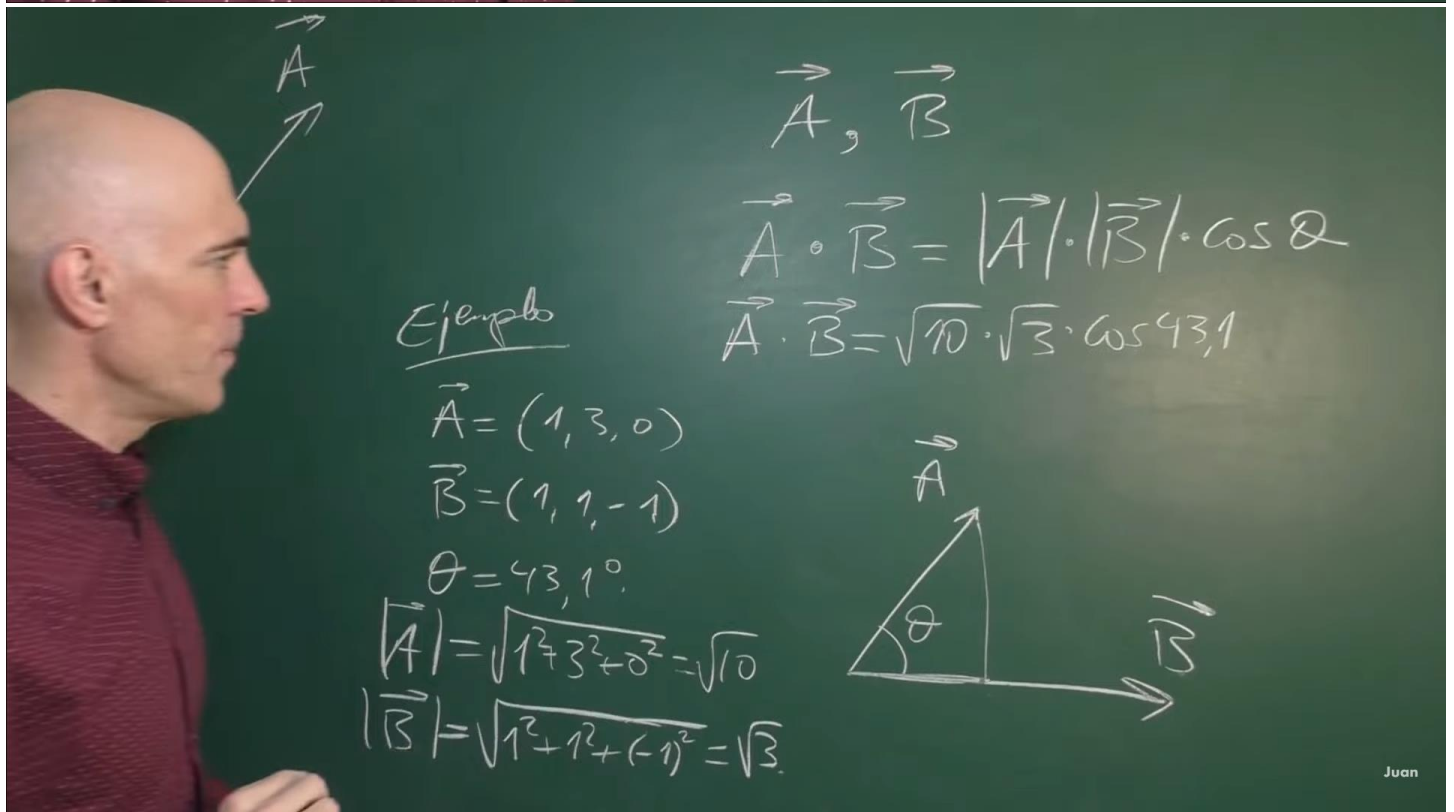 A⃗
A⃗, B⃗
A⃗ · B⃗ = |A⃗|·|B⃗|·cos θ
A⃗ · B⃗ = √10 · √3 · cos 43,1
Ejemplo
A⃗ = (1, 3, 0)
B⃗ = (1, 1, -1)
θ = 43,1°.
|A⃗| = √(1²+3²+0²) = √10
|B⃗| = √(1²+1²+(-1)²) = √3.
A⃗
θ
B⃗
Juan